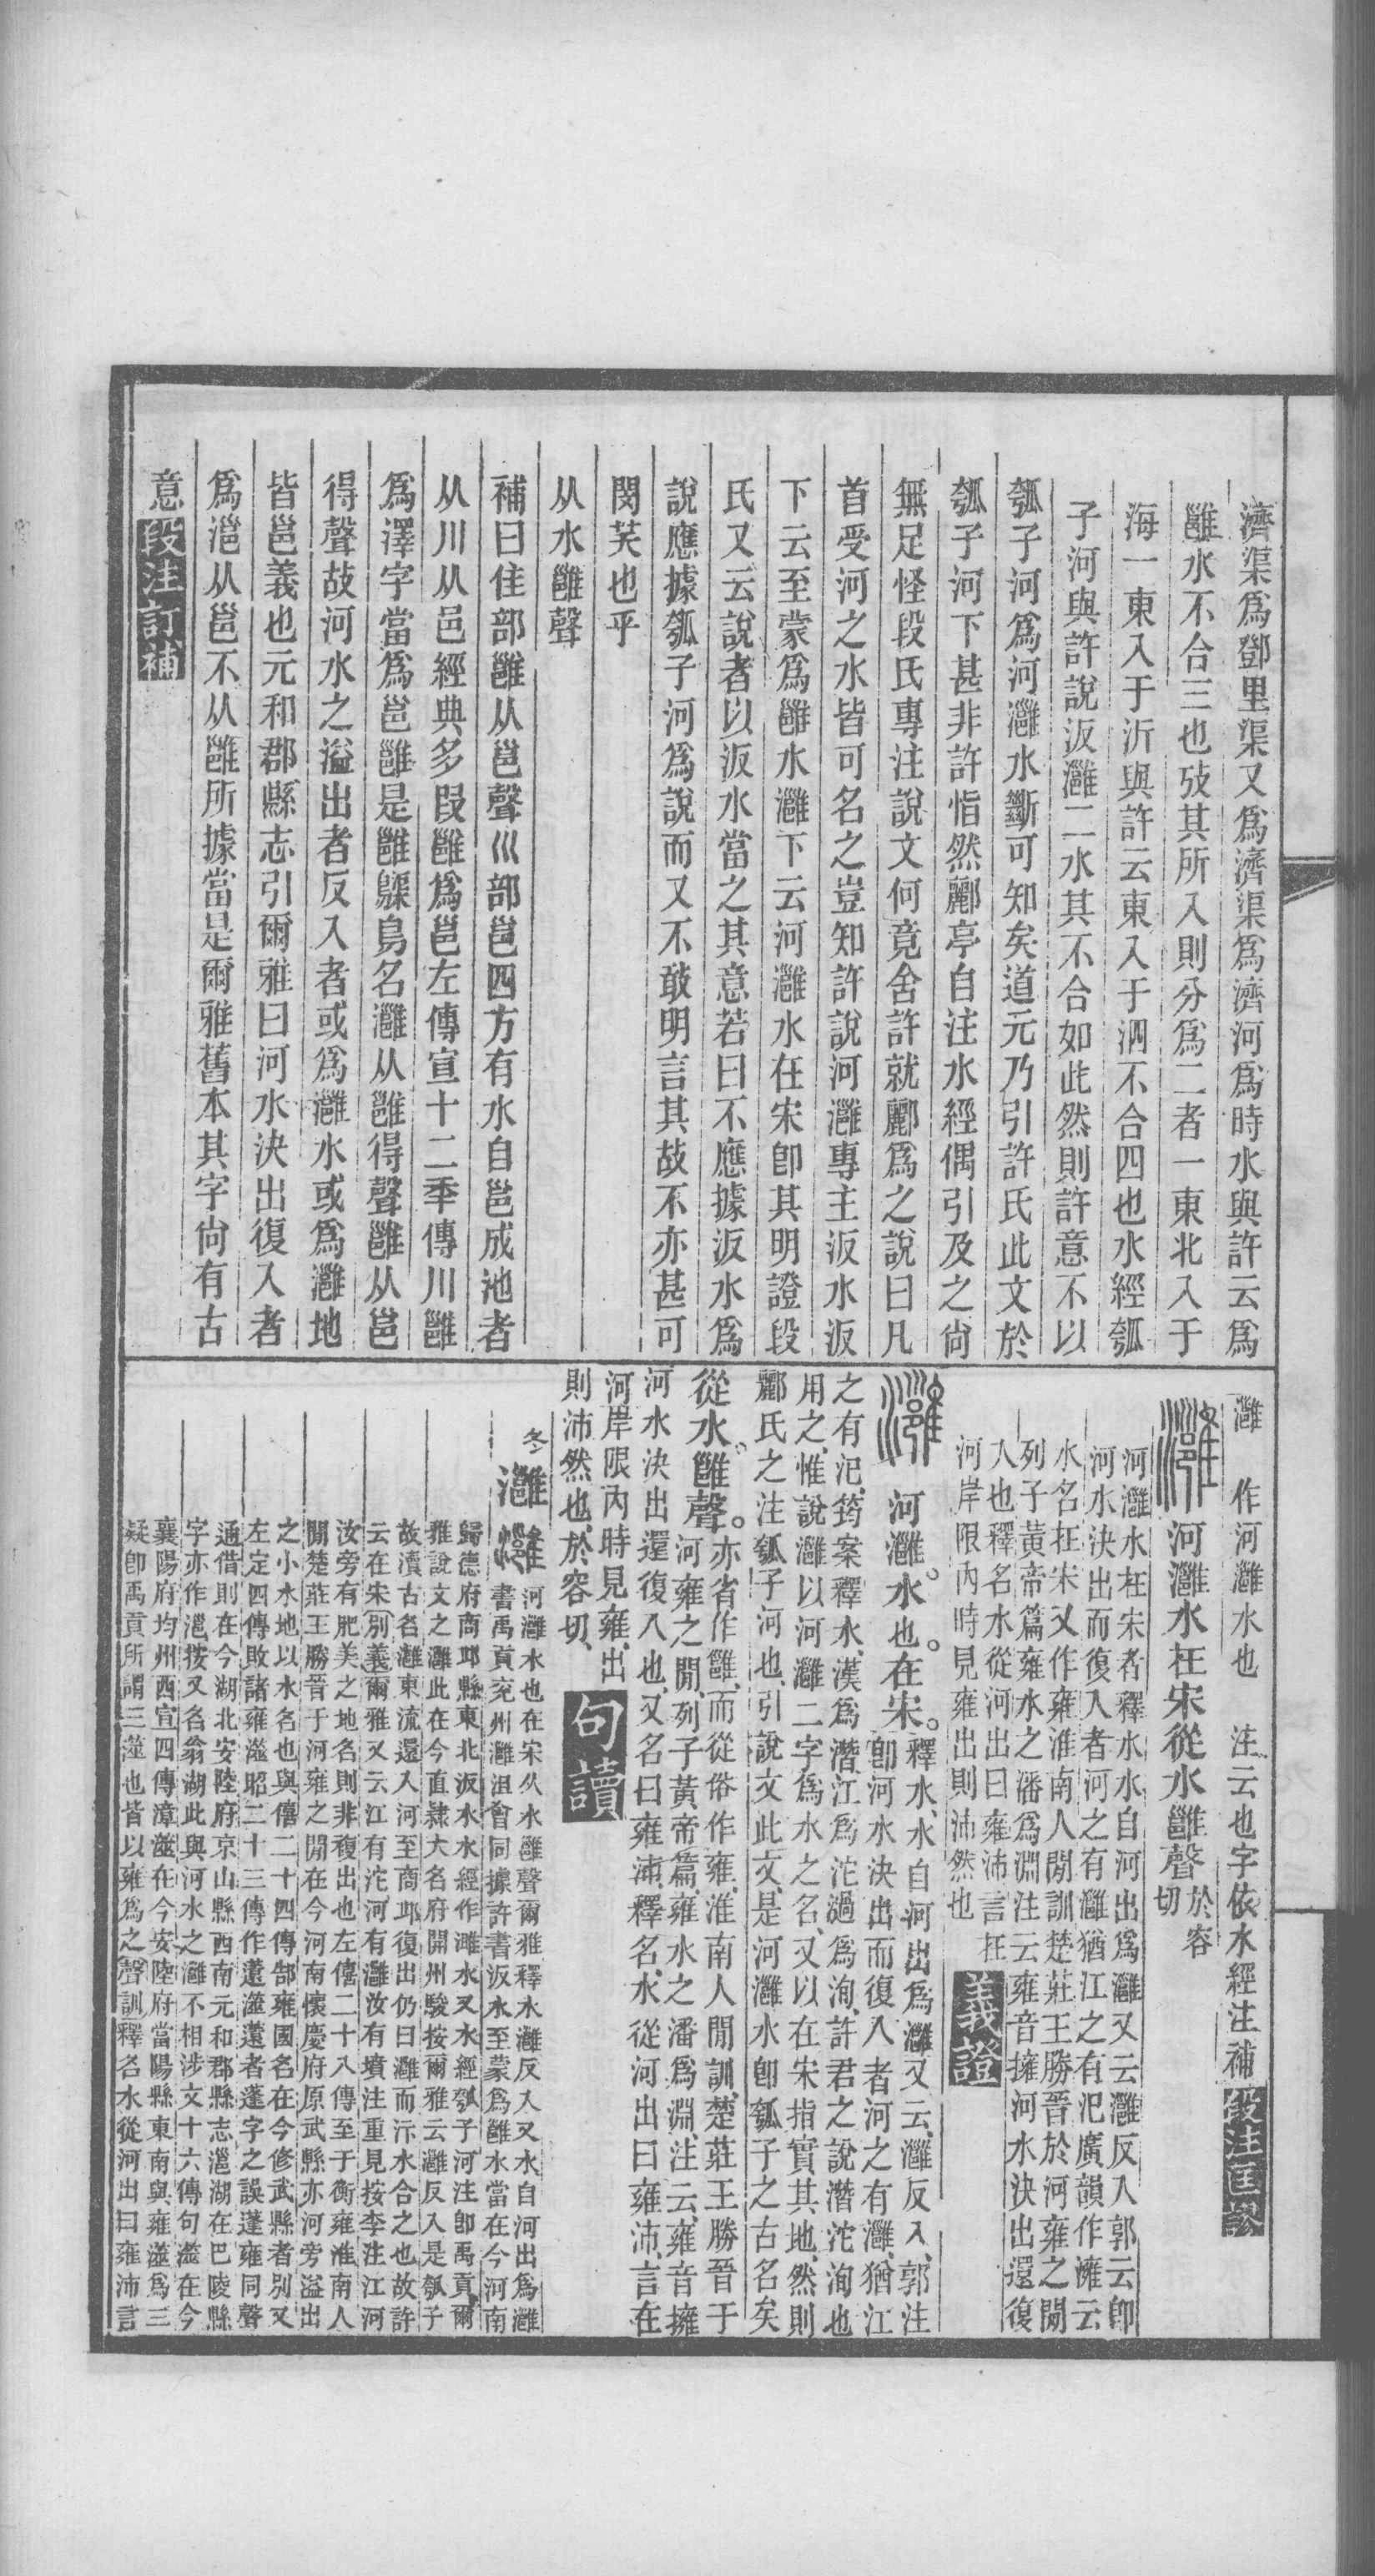 濟渠爲鄧里渠又爲濟渠爲濟河爲時水與許云爲
雝水不合三也攷其所入則分爲二者一東北入于
海一東入于沂與許云東入于泗不合四也水經瓠
子河與許說汳灉二水其不合如此然則許意不以
瓠子河爲河灉水斷可知矣道元乃引許氏此文於
瓠子河下甚非許恉然酈亭自注水經偶引及之尙
無足怪段氏專注說文何竟舍許就酈爲之說曰凡
首受河之水皆可名之豈知許說河灉專主汳水汳
下云至蒙爲雝水灉下云河灉水在宋卽其明證段
氏又云說者以汳水當之其意若曰不應據汳水爲
說應據瓠子河爲說而又不敢明言其故不亦甚可
閔笑也乎
从水雝聲
補曰隹部雝从邕聲巛部邕四方有水自邕成池者
从川从邑經典多叚雝爲邕左傳宣十二年傳川雝
爲澤字當爲邕雝是雝鸔鳥名灉从雝得聲雝从邕
得聲故河水之溢出者反入者或爲灉水或爲灉地
皆邕義也元和郡縣志引爾雅曰河水決出復入者
爲滬从邕不从雝所據當是爾雅舊本其字尙有古
意段注訂補
灉 作河灉水也 注云也字依水經注補段注匡謬
河灉水在宋從水雝聲於容切
河灉水在宋者釋水水自河出爲灉又云灉反入郭云卽
河水決出而復入者河之有灉猶江之有汜廣韻作澭云
水名在宋又作雍淮南人閒訓楚莊王勝晉於河雍之閒
列子黃帝篇雍水之潘爲淵注云雍音擁河水決出還復
入也釋名水從河出曰雍沛言在
河岸限內時見雍出則沛然也 義證
河灉。水也。在宋。釋水、水自河出爲灉又云、灉反入、郭注
卽河水決出而復入者河之有灉、猶江
之有汜、筠案釋水、漢爲潛、江爲沱、過爲洵、許君之說潛沱洵也
用之、惟說灉以河灉二字爲水之名、又以在宋指實其地、然則
酈氏之注瓠子河也、引說文此文、是河灉水卽瓠子之古名矣
從水。雝聲。亦省作雝、而從俗作雍、淮南人閒訓、楚莊王勝晉于
河雍之閒、列子黃帝篇、雍水之潘爲淵、注云、雍音擁
河水決出還復入也、又名曰雍沛、釋名、水從河出曰雍沛、言在
河岸限內時見雍、出
則沛然也、於容切、 句讀
灉 河灉水也在宋从水雝聲爾雅釋水灉反入又水自河出爲灉
書禹貢兖州灉沮會同據許書汳水至蒙爲雝水當在今河南
歸德府商邱縣東北汳水水經作濉水又水經瓠子河注卽禹貢爾
雅說文之灉此在今直隸大名府開州駿按爾雅云灉反入是瓠子
故瀆古名灉東流還入河至商邱復出仍曰灉而汴水合之也故許
云在宋別義爾雅又云江有沱河有灉汝有墳注重見按李注江河
汝旁有肥美之地名則非複出也左僖二十八傳至于衡雍淮南人
閒楚莊王勝晉于河雍之閒在今河南懷慶府原武縣亦河旁溢出
之小水地以水名也與僖二十四傳郜雍國名在今修武縣者別又
左定四傳敗諸雍澨昭二十三傳作薳澨薳者蓬字之誤蓬雍同聲
通借則在今湖北安陸府京山縣西南元和郡縣志滬湖在巴陵縣
字亦作滬按又名翁湖此與河水之灉不相涉文十六傳句澨在今
襄陽府均州西宣四傳漳澨在今安陸府當陽縣東南與雍澨爲三
疑卽禹貢所謂三澨也皆以雍爲之聲訓釋名水從河出曰雍沛言